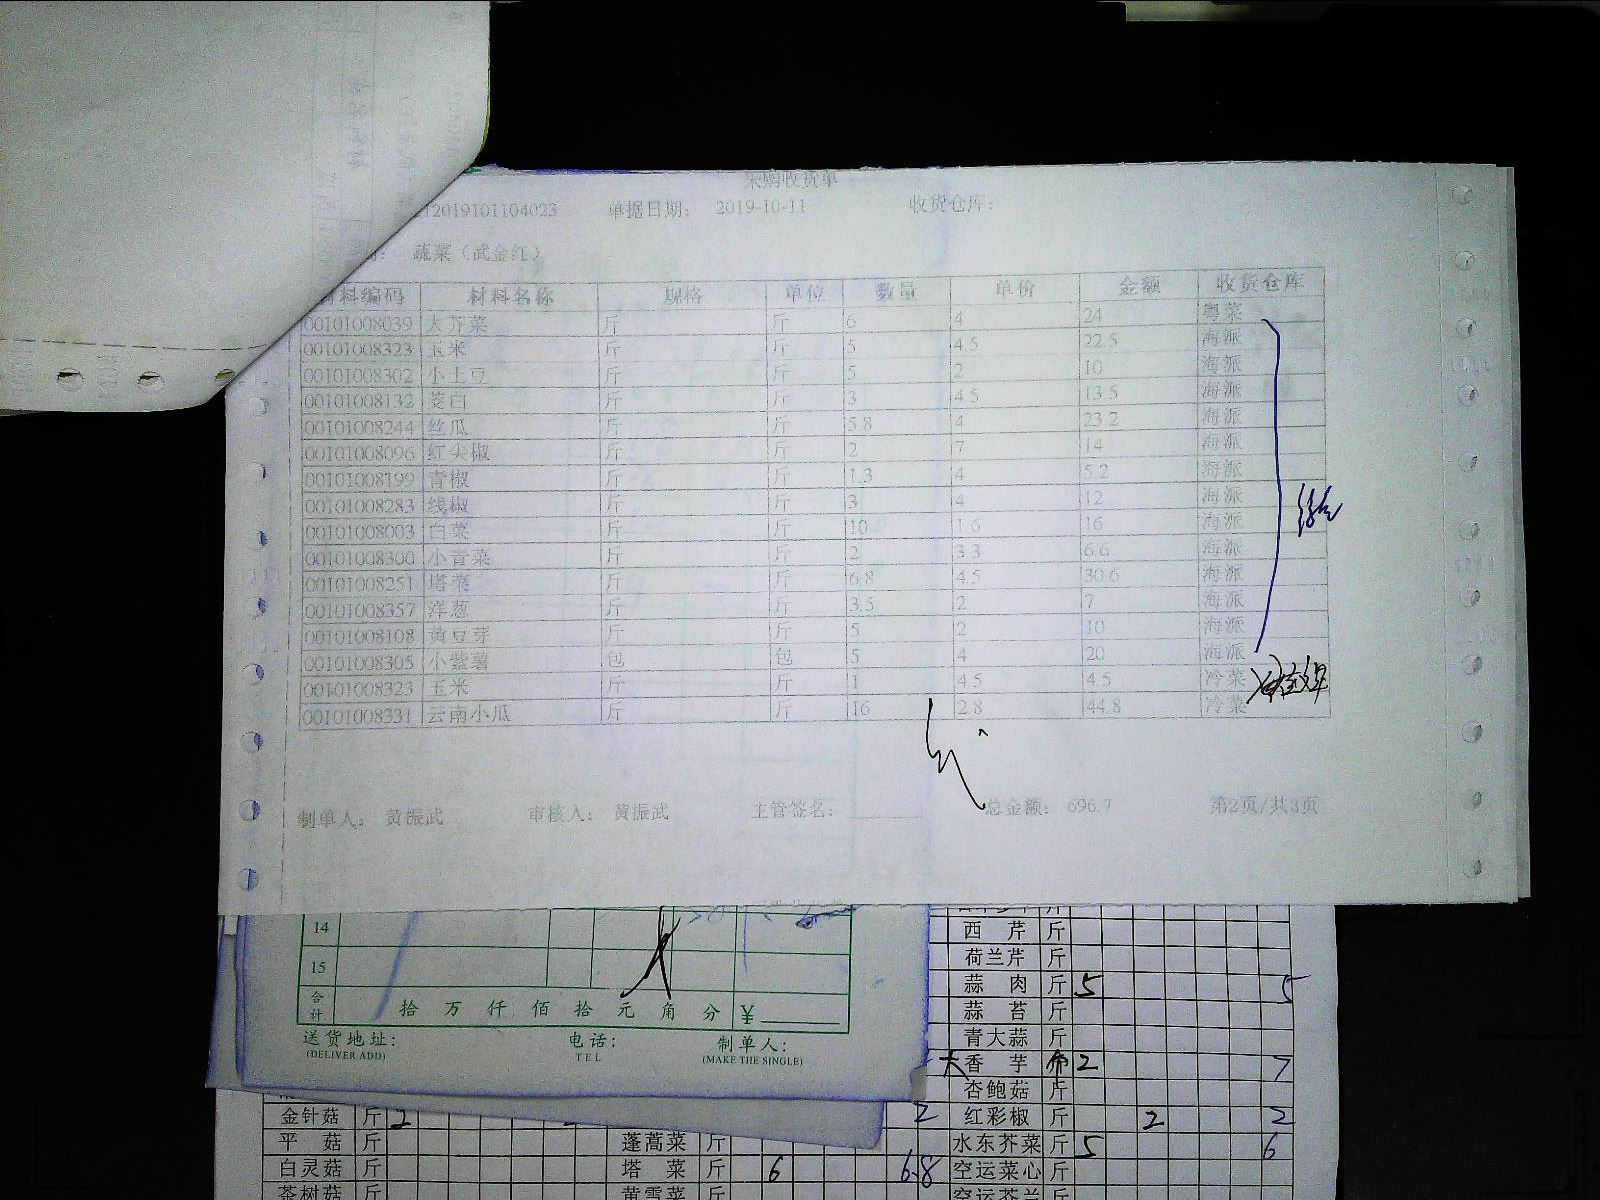 采购收货单
12019101104023 单据日期： 2019-10-11 收货仓库：
： 蔬菜（武金红）
材料编码 材料名称 规格 单位 数量 单价 金额 收货仓库
00101008039 大芥菜 斤 斤 6 4 24 粤菜
00101008323 玉米 斤 斤 5 4.5 22.5 海派
00101008302 小土豆 斤 斤 5 2 10 海派
00101008132 茭白 斤 斤 3 4.5 13.5 海派
00101008244 丝瓜 斤 斤 5.8 4 23.2 海派
00101008096 红尖椒 斤 斤 2 7 14 海派
00101008199 青椒 斤 斤 1.3 4 5.2 海派
00101008283 线椒 斤 斤 3 4 12 海派
00101008003 白菜 斤 斤 10 1.6 16 海派
00101008300 小青菜 斤 斤 2 3.3 6.6 海派
00101008251 塔菜 斤 斤 6.8 4.5 30.6 海派
00101008357 洋葱 斤 斤 3.5 2 7 海派
00101008108 黄豆芽 斤 斤 5 2 10 海派
00101008305 小紫薯 包 包 5 4 20 海派
00101008323 玉米 斤 斤 1 4.5 4.5 冷菜
00101008331 云南小瓜 斤 斤 16 2.8 44.8 冷菜
制单人： 黄振武 审核人： 黄振武 主管签名： 总金额： 696.7 第2页/共3页
14
15
合计 拾 万 仟 佰 拾 元 角 分 ¥
送货地址： 电话： 制单人：
(DELIVER ADD) TEL (MAKE THE SINGLE)
西芹 斤
荷兰芹 斤
蒜肉 斤 5 5
蒜苔 斤
青大蒜 斤
大香芋 2 7
杏鲍菇 斤
金针菇 斤 2 2 红彩椒 斤 2 2
平菇 斤 蓬蒿菜 斤 水东芥菜 斤 5 6
白灵菇 斤 塔菜 斤 6 6.8 空运菜心 斤
茶树菇 斤 黄雪菜 斤 空运芥兰 斤